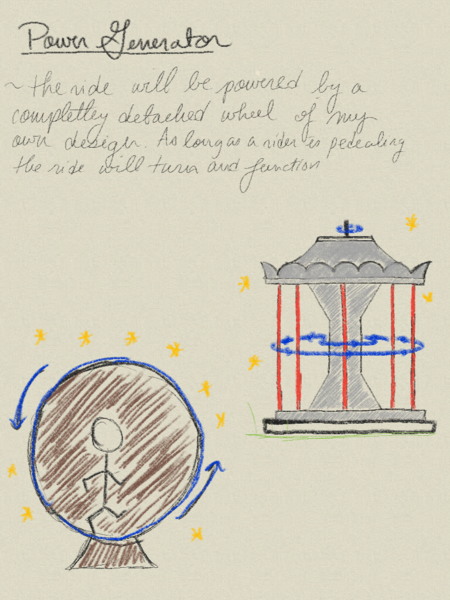 Power Generator
~ the ride will be powered by a
completley detached wheel of my
own design. As long as a rider is pedealing
the ride will turn and function